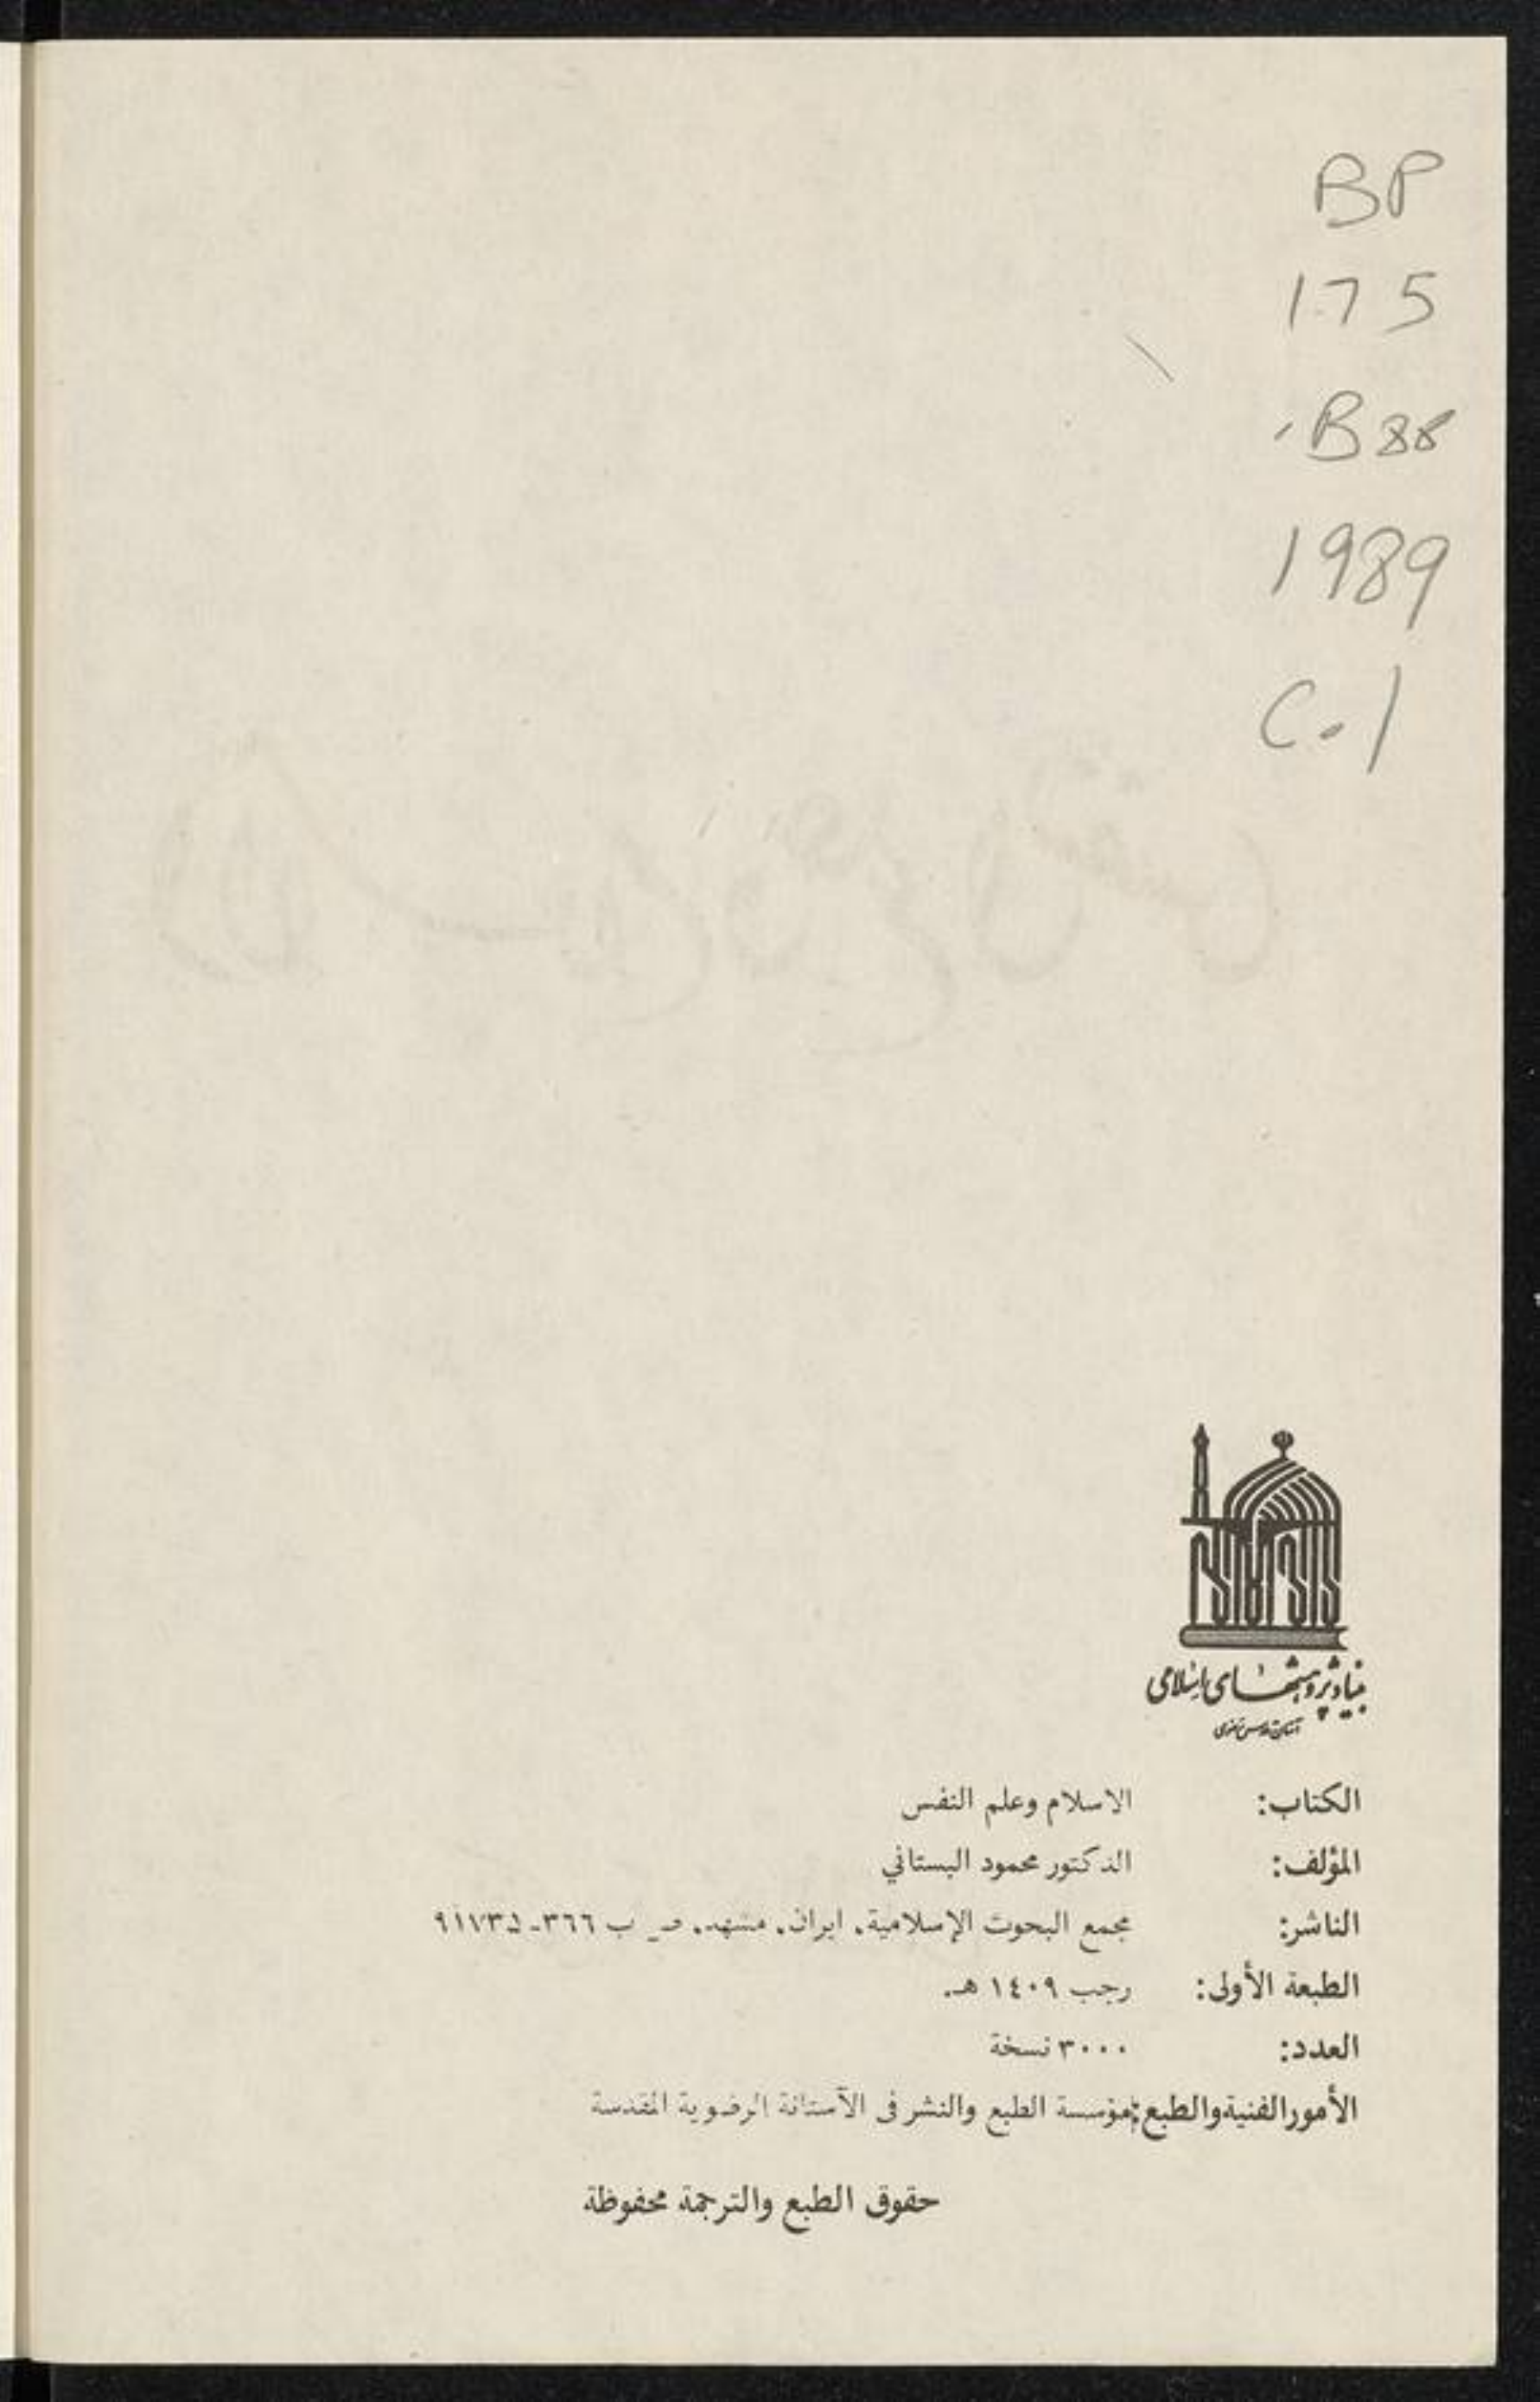 BP
175
.B88
1989
C.1
بنیاد پژوهشهای اسلامی
آستان قدس رضوی
الكتاب: الاسلام وعلم النفس
المؤلف: الدكتور محمود البستاني
الناشر: مجمع البحوث الإسلامية، ايران، مشهد، ص ب ٣٦٦ـ ٩١٧٣٥
الطبعة الأولى: رجب ١٤٠٩ هـ.
العدد: ٣٠٠٠ نسخة
الأمور الفنية والطبع: مؤسسة الطبع والنشر فى الآستانة الرضوية المقدسة
حقوق الطبع والترجمة محفوظة